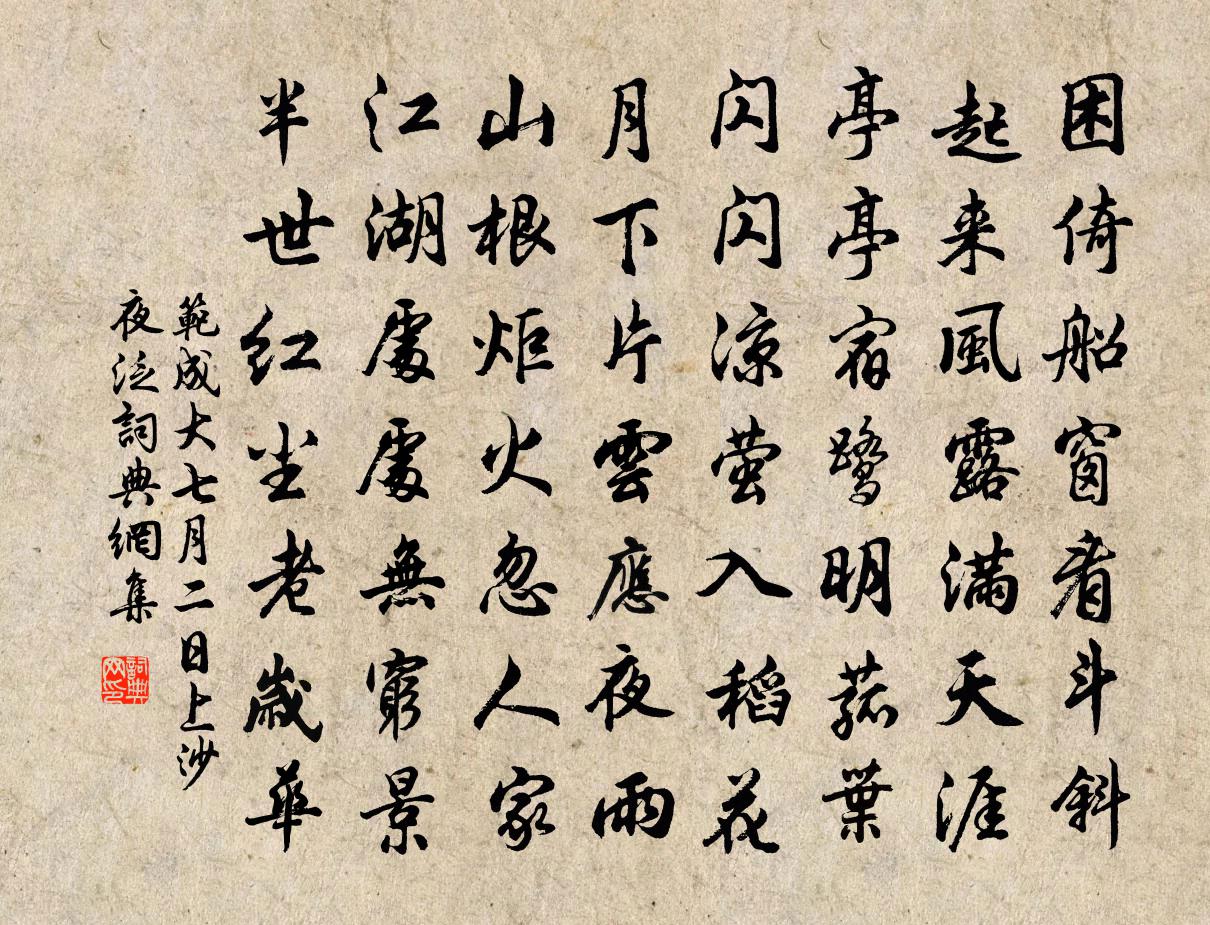 困倚船窗看斗斜
起来風露滿天涯
亭亭宿鹭明菰葉
闪闪凉萤入稻花
月下片雲應夜雨
山根炬火忽人家
江湖處處無窮景
半世红尘老歲華
範成大七月二日上沙
夜泛詞典網集
詞典
网印